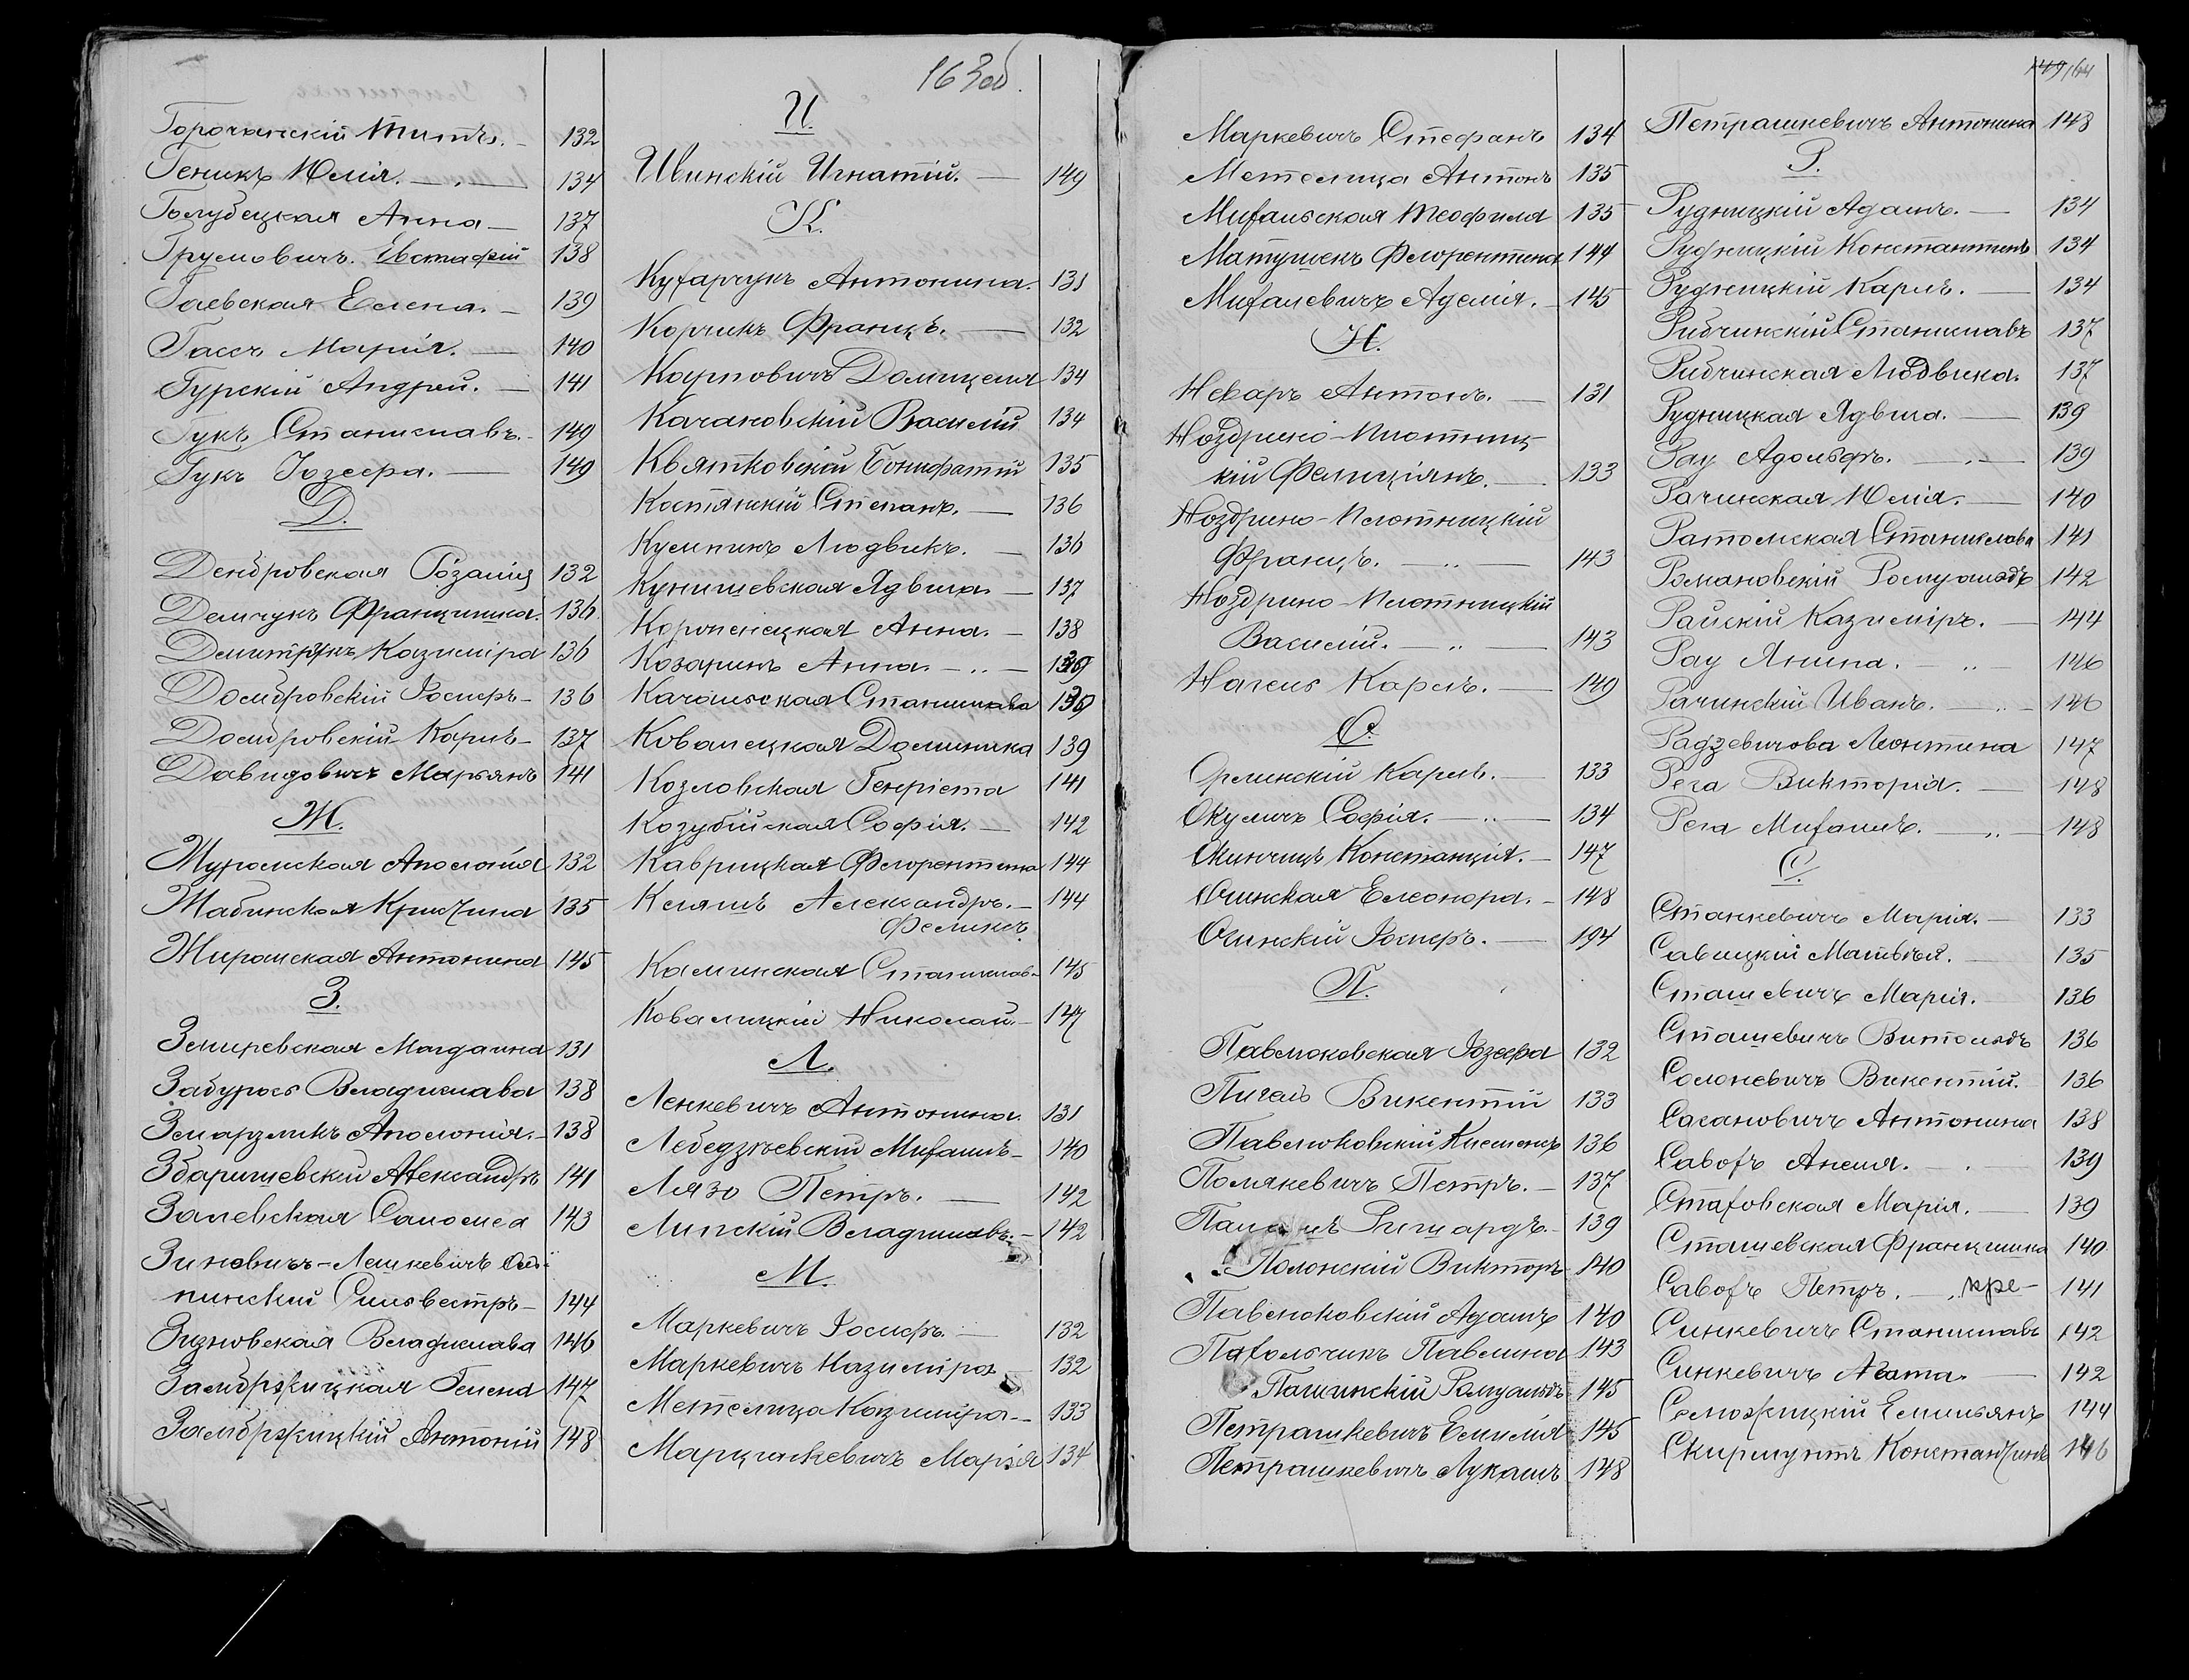 163об.
Горочанскій Титъ. - 132
Геникъ Юлія. — . — 134
Голубецкая Анна — 137
Грумовичъ. Евстафій 138
Гаевская Елена. — 139
Гассъ Марія. — 140
Гурскій Андрей. — 141
Гукъ Станиславъ. - 149
Гукъ Іозефа. — 149
Д.
Дендровская Розалія 132
Демчукъ Францишка. 136
Демитрукъ Казиміра 136
Домбровскій Іосифъ - 136
Домбровскій Карлъ - 137
Давидовичъ Марьянъ 141
Ж.
Журомская Аполонія 132
Жабинская Кристина 135
Жиромская Антонина 145
З.
Змиревская Магдалина 131
Забурось Владислава 138
Змарзликъ Аполонія. - 138
Збаришевскій Александръ 141
Залевская Саломеа 143
Зиновичъ-Лешкевичъ Ол-
пинскій Сильвестръ - 144
Зизновская Владислава 146
Замбржицкая Гелена 147
Замбржицкій Антоній 148
И.
Ивинскій Игнатій. — 149
К.
Кухарчукъ Антонина. 131
Корчикъ Францъ. — 132
Карповичъ Домицеля 134
Качановскій Василій 134
Квятковскій Бонифатій 135
Костянскій Степанъ. — 136
Кульпикъ Людвикъ. — 136
Кунишевская Ядвига. — 137
Коронецкая Анна. — 138
Козаринъ Анна. — .. — 139
Качальская Станислава 139
Ковалецкая Доминика 139
Козловская Генріета 141
Козубійская Софія. — 142
Каврицкая Флорентина 144
Кляшъ Александръ. — 144
Феликсъ
Калинская Станислав. 145
Ковалицкій Николай. — 147
Л.
Ленкевичъ Антонина. 131
Лебедзѣевскій Михаилъ - 140
Лязо Петръ. — 142
Липскій Владиславъ. - 142
М.
Маркевичъ Іосифъ. — 132
Маркевичъ Казиміра 132
Метелица Казиміра - 133
Марцинкевичъ Марія 134
149 164
Маркевичъ Стефанъ 134
Метелица Антонъ 135
Михальская Теофила 135
Матушекъ Флорентина 144
Михалевичъ Аделія. - 145
Н.
Нехаръ Антонъ. — 131
Ноздрино-Плотниц-
кій Фелиціянъ. — 133
Ноздрино-Плотницкій
Францъ. — .. — 143
Ноздрино-Плотницкій
Василій. — .. — 143
Нагель Карлъ. — 149
О.
Орлинскій Карлъ. — 133
Окуличъ Софія. — .. — 134
Окинчицъ Констанція. — 147
Огинская Елеонора. - 148
Огинскій Іосифъ. — 194
П.
Павлюковская Іозефа 132
Пигель Викентій 133
Павлюковскій Клеменсъ 136
Полякевичъ Петръ. — 137
Ришардъ. - 139
Полонскій Викторъ 140
Павлюковскій Адамъ 140
Пахольчикъ Павлина 143
Пашинскій Ромуальдъ 145
Петрашкевичъ Емилія 145
Петрашкевичъ Лукашъ 148
Петрашкевичъ Антонина 148
Р.
Рудницкій Адамъ. — 134
Рудницкій Константинъ 134
Рудницкій Карлъ. — 134
Рибчинскій Станиславъ 137
Рибчинская Людвика. 137
Рудницкая Ядвига. — 139
Рау Адольфъ. — . — 139
Рачинская Юлія. — 140
Ратомская Станислава 141
Романовскій Ромуальдъ 142
Райскій Казиміръ. — 144
Рау Янина. — .. — 146
Рачинскій Иванъ. — .. - 146
Радзевичова Леонтина 147
Рега Викторія. — 148
Рега Михаилъ. — .. — 148
С.
Станкевичъ Марія. — 133
Савицкій Матвѣй. — 135
Сташевичъ Марія. — 136
Сташевичъ Витольдъ 136
Солоневичъ Викентій. 136
Сасановичъ Антонина 138
Савохъ Анеля. — . — 139
Стаховская Марія. — 139
Сташевская Францишка 140
Савохъ Петръ. — .. кре- 141
Синкевичъ Станиславъ 142
Синкевичъ Агата. — 142
Сложицкій Емильянъ 144
Скирмунтъ Константинъ 146